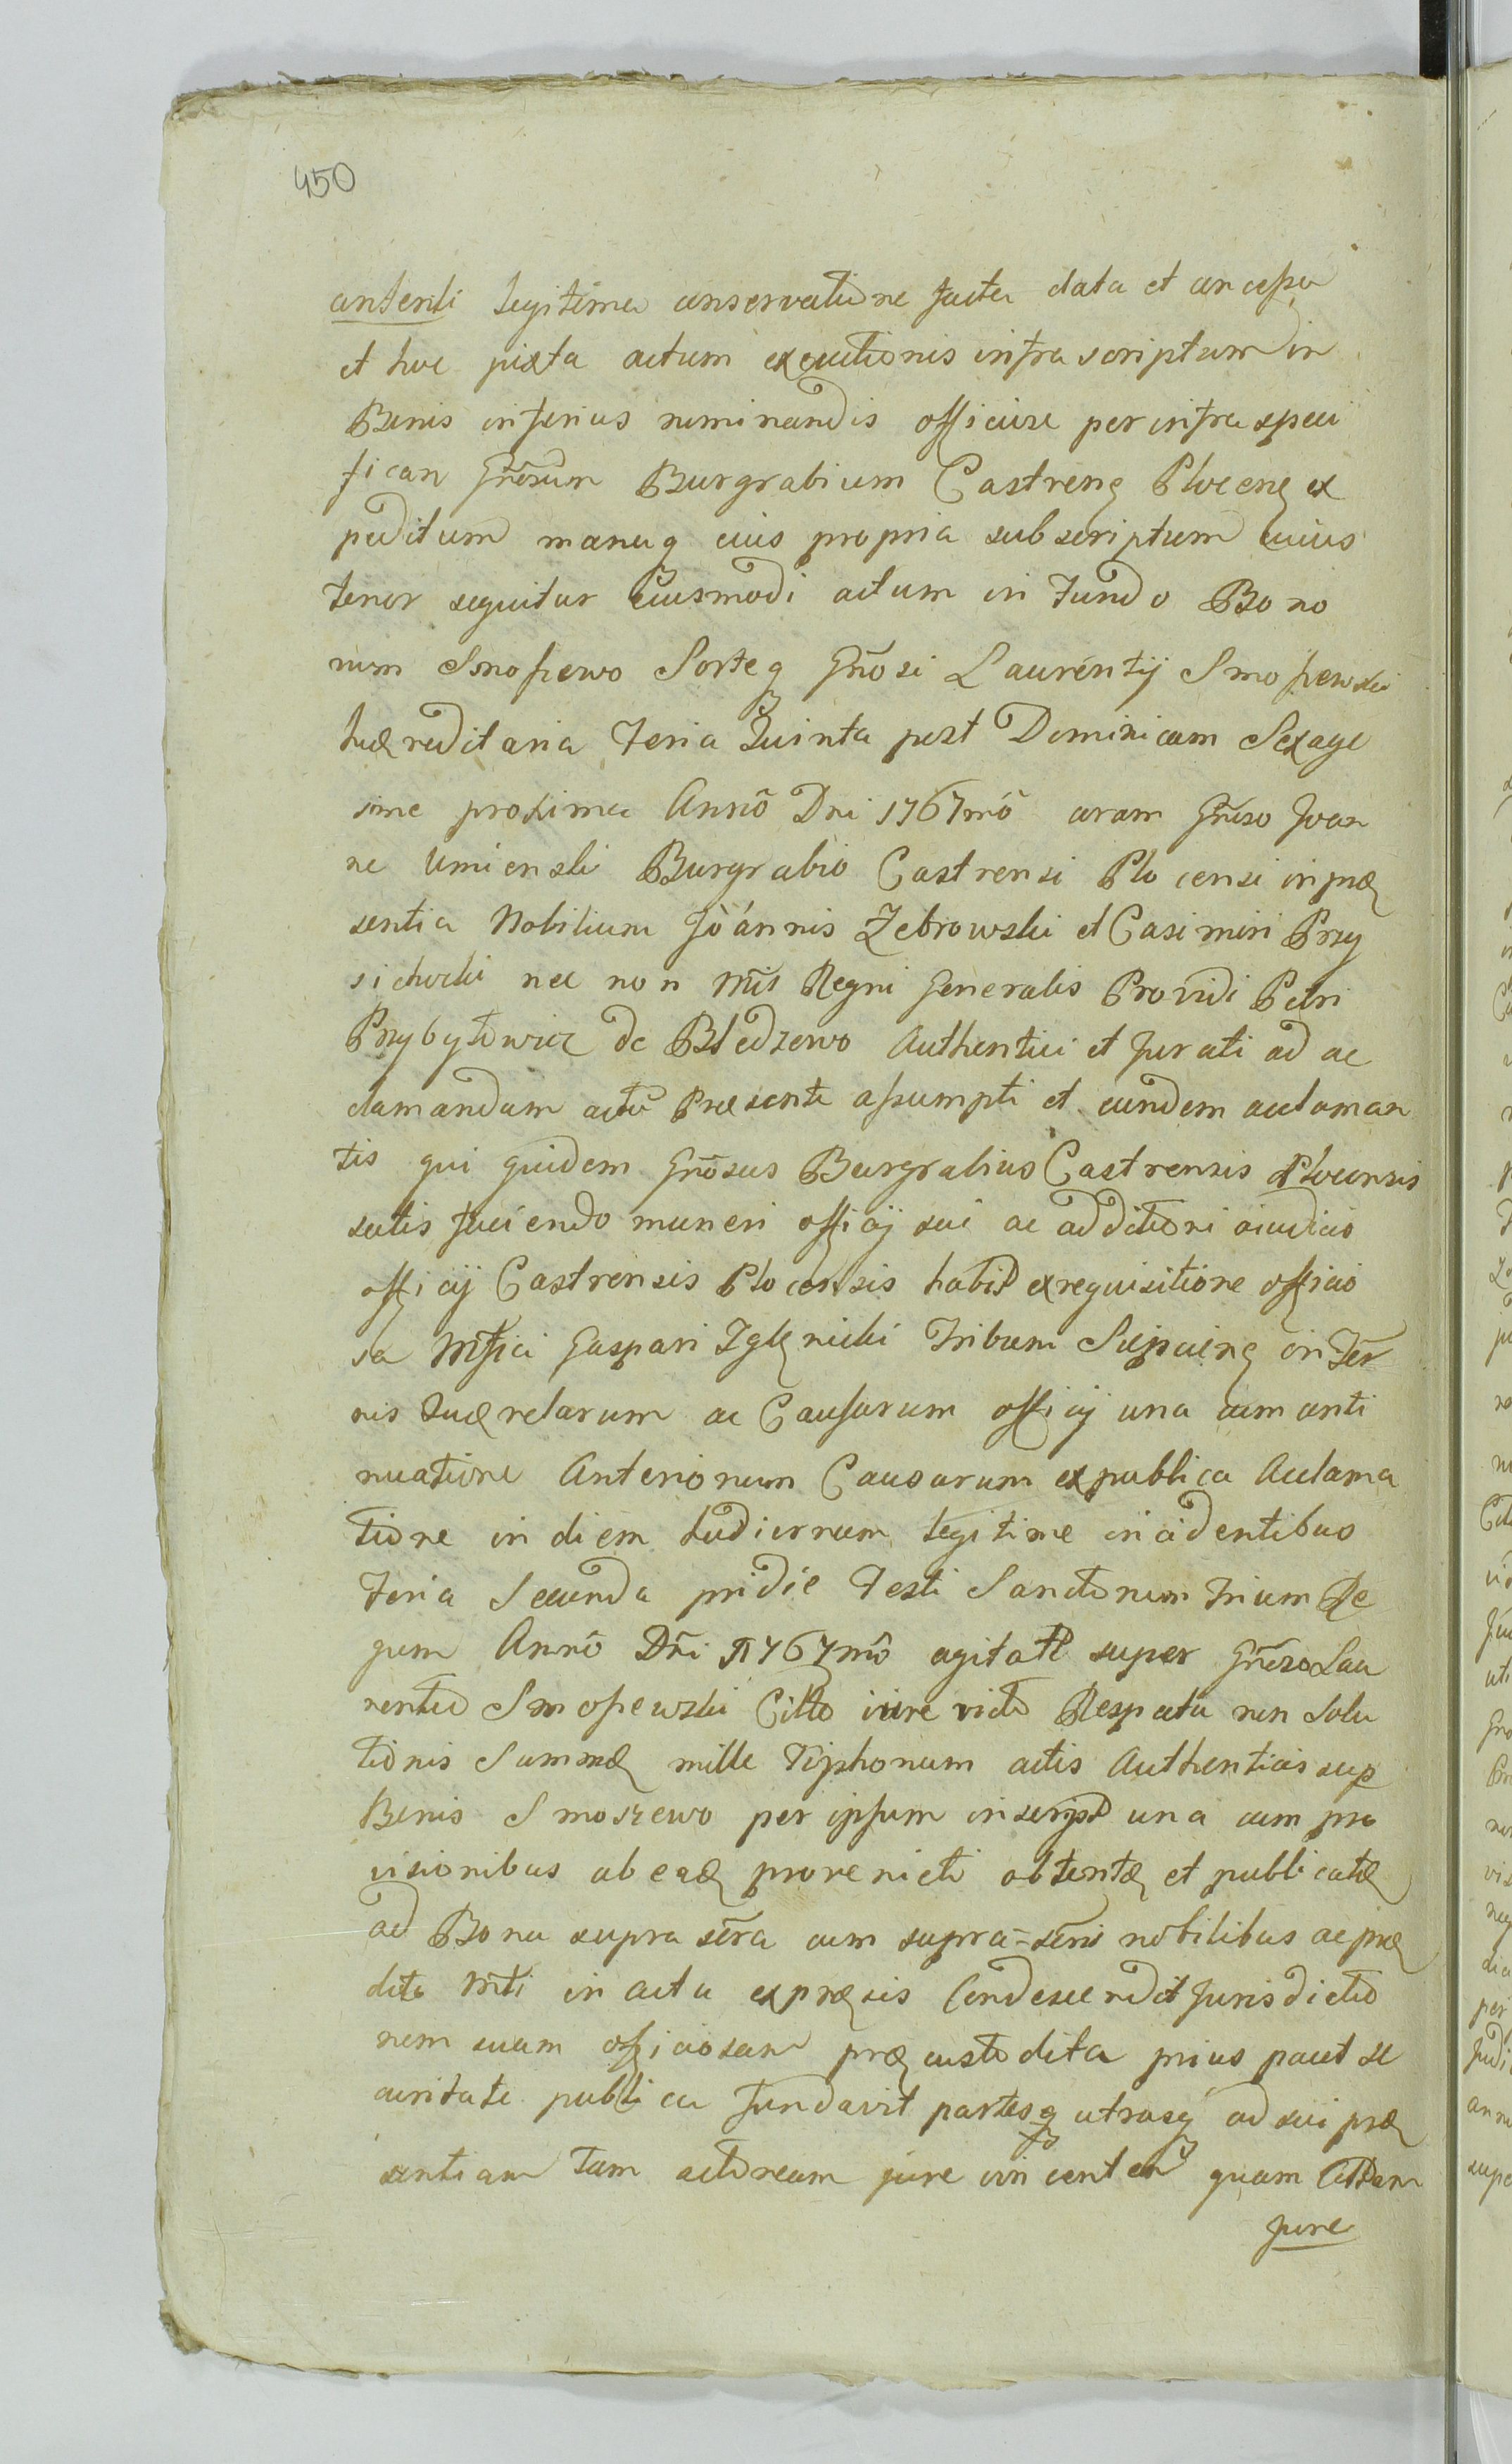 450
contenti legitima conservatione facta data et concessa
et hoc juxta actum executionis infra scriptum in
Bonis inferius nominandis officiose per infra speci
fican Gnosum Burgrabium Castrenę Plocenę ex
peditum manuq eius propria subscriptum cuius
tenor sequitur Eiusmodi actum in Fundo Bono
rum Smoszewo Sorteq Gnosi Laurentij Smoszewski
hæreditaria Feria Quinta post Dominicam Sexage
sime proxima Anno Dni 1767mo coram Gnoso Joan
ne Umienski Burgrabio Castrensi Plocensi in præ
sentia Nobilium Joannis Zebrowski et Casimiri Przy
sichocki nec non Mris Regni Generalis Providi Petri
Przybyłowicz de Bledzewo Authentici et Jurati ad ac
clamandum actu Præsente assumpti et eundem acclaman
tis qui quidem Gnosus Burgrabius Castrensis Plocensis
satis faciendo muneri officij sui ac addictioni ciudicio
officij Castrensis Plocensis habit ex requisitione officio
sa Mfici Gaspari Zglenicki Tribuni Sierpcenę in Ter
nis Quærelarum ac Causarum officij una cum conti
nuatione Anteriorum Causarum ex publica Acclama
tione in diem hodiernum legitime incidentibus
Feria Secunda pridie Festi Sanctorum Trium Re
gum Anno Dni 1767mo agitat super Gnoso Lau
rentio Smoszewski Citto iure victo Respectu non Solu
tionis Summæ mille Tiphorum actis Authenticis sup
Bonis Smoszewo per ipsum inscript una cum pro
visionibus ab eadę provenicti obtentæ et publicatæ
ad Bona supra scra cum supra=scris nobilibus ac præ
dicto Mrti in actu expræsis Condescendit Jurisdictio
nem suam officiosam præcustodita prius pacet se
curitate publica Fundavit partesq utrasq ad sui præ
sentiam Tam actoream jure vincentem quam Cittam
Jure